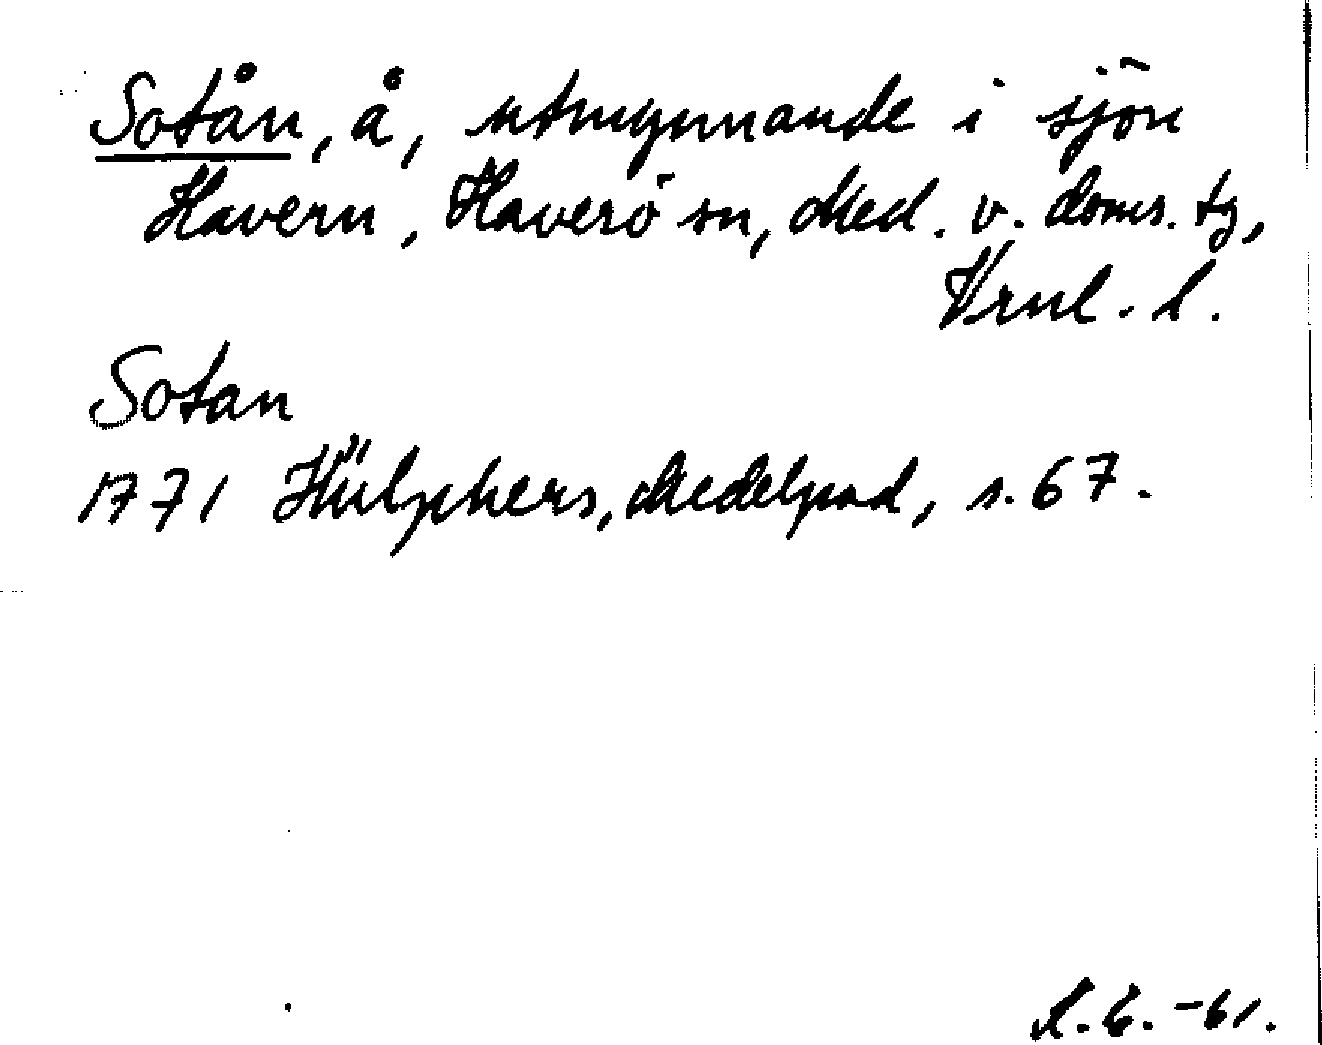 Sotån, å, utmynnande i sjön
Havern, Haverö sn, Med. v. doms. tg,
Vrnl. l.
Sotan
1771 Hülphers, Medelpad, s. 67.
-61.